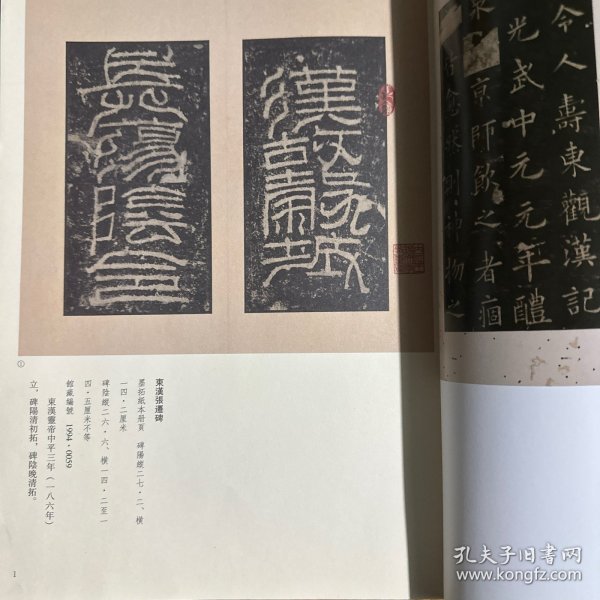 令人壽東觀漢記
光武中元元年醴
泉
京師飲之者痼
皆愈然則神物之
漢故穀城
長蕩陰令
①
東漢張遷碑
墨拓紙本册頁　碑陽縱二七·二、橫
一四·二厘米
碑陰縱二六·六、橫一四·二至一
四·五厘米不等
館藏編號　1994·0059
東漢靈帝中平三年（一八六年）
立。碑陽清初拓，碑陰晚清拓。
1
孔夫子旧书网
www.kongfz.com